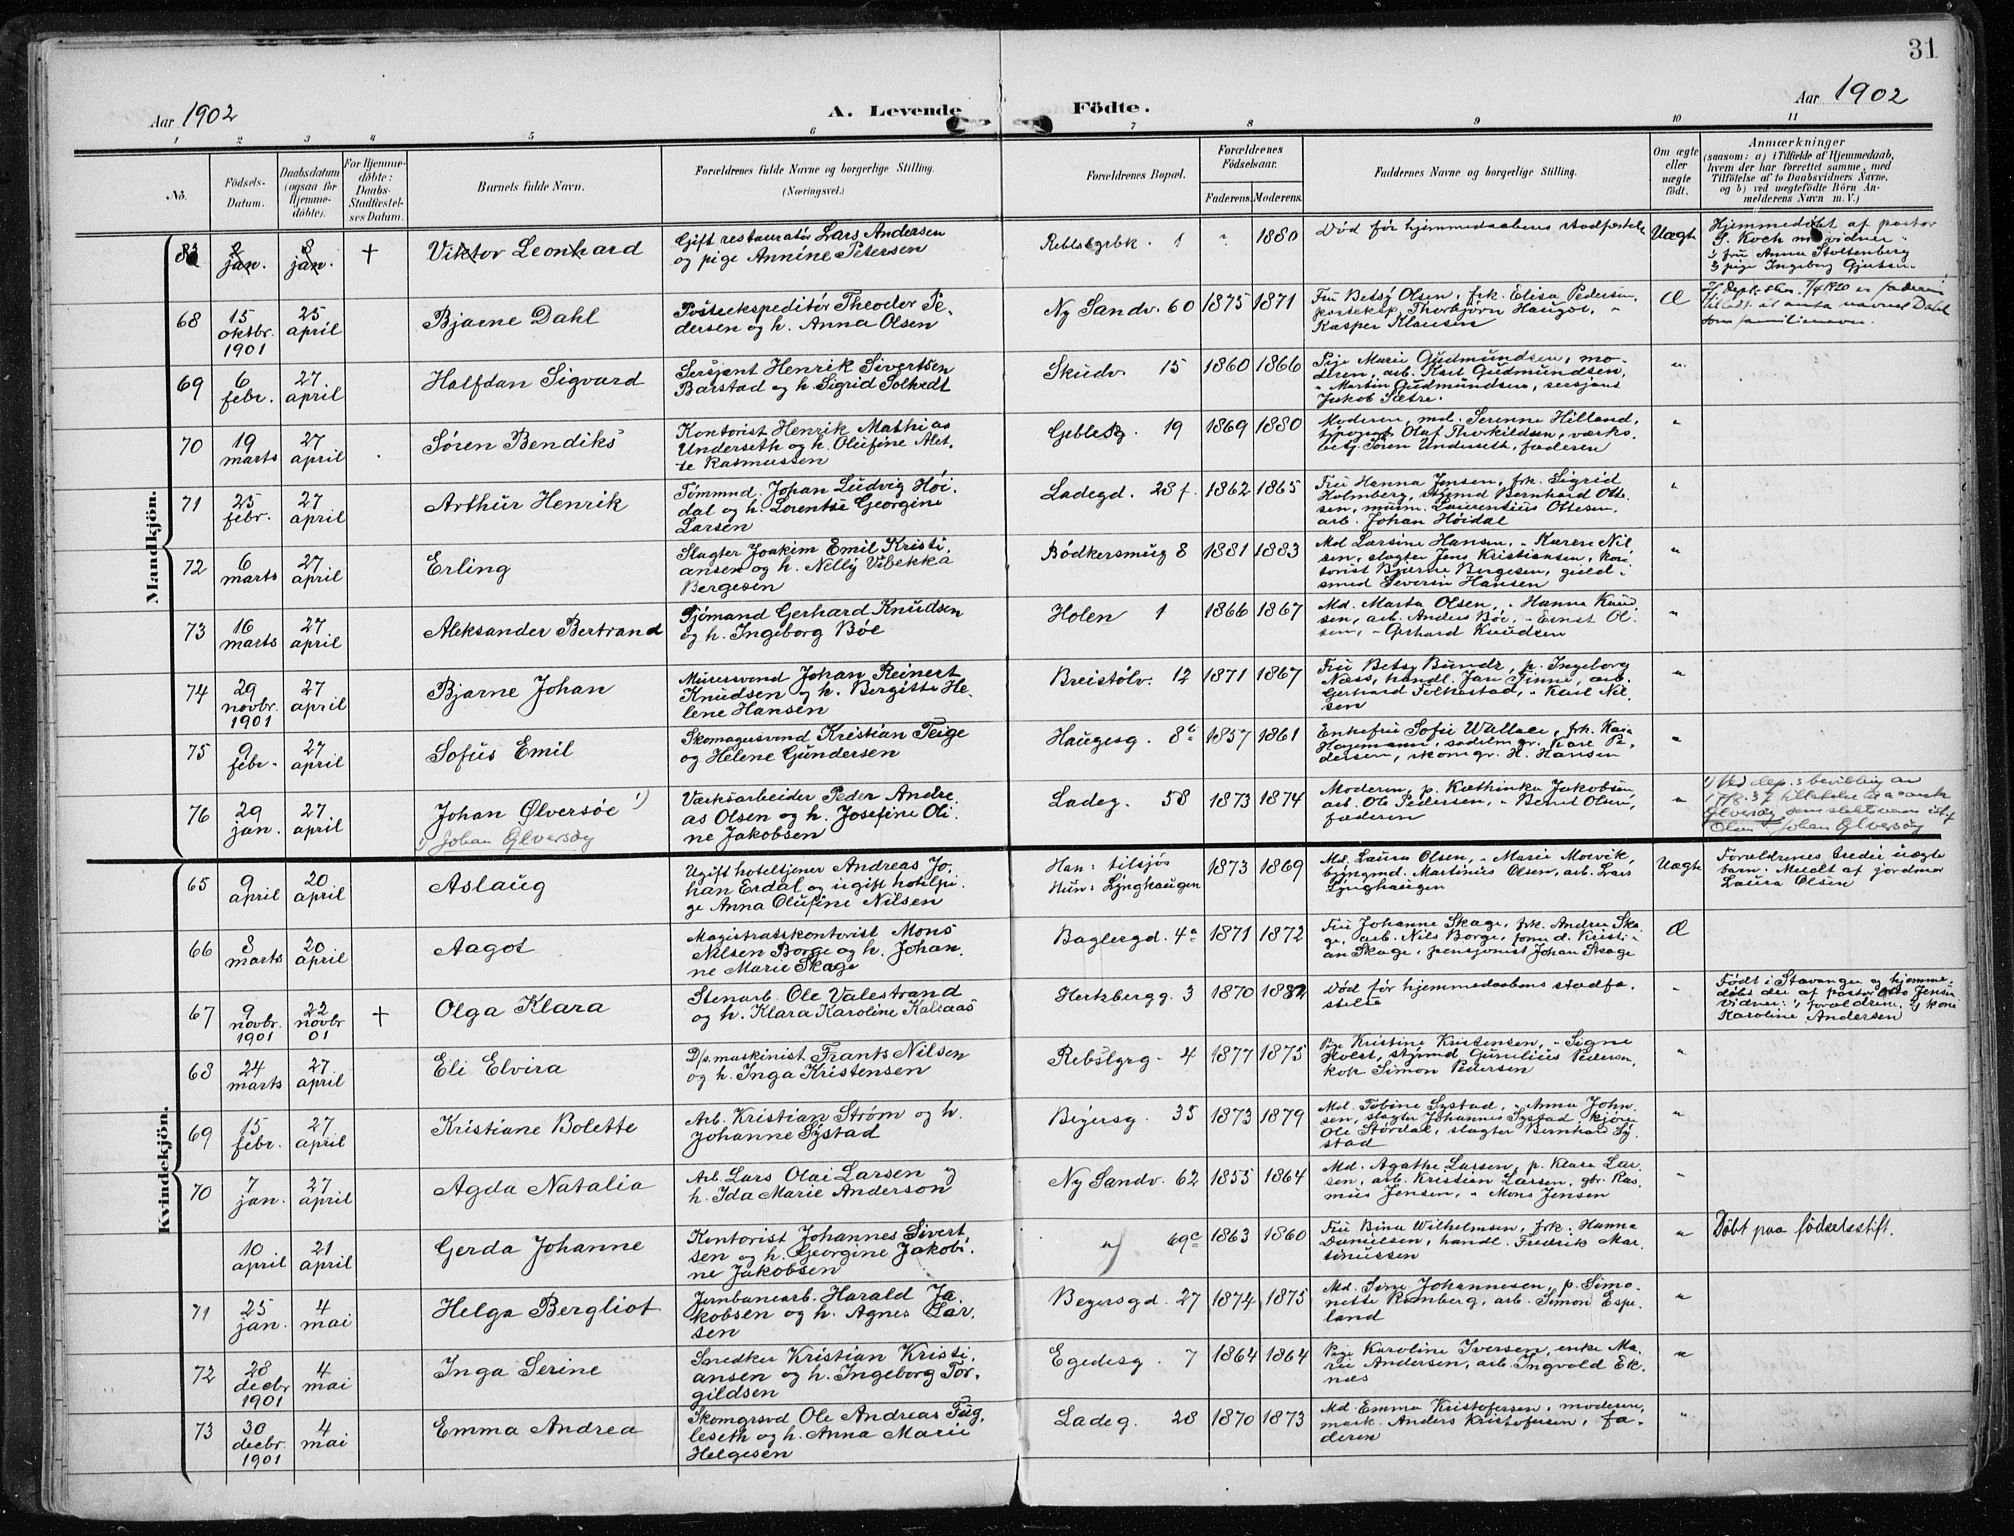 31
Aar 1902
A. Levende Födte.
Aar 1902
1 2 3 4 5 6 7 8 9 10 11
No.
Födsels-Datum.
Daabsdatum (ogsaa for Hjemmedöbte).
For Hjemmedöbte: Daabs-Stadfæstelses Datum.
Barnets fulde Navn.
Forældrenes fulde Navne og borgerlige Stilling. (Næringsvei.)
Forældrenes Bopæl.
Forældrenes Födselsaar.
Faderens. Moderens.
Faddernes Navne og borgerlige Stilling.
Om ægte eller uægte födt.
Anmærkninger
(saasom: a) i Tilfælde af Hjemmedaab, hvem der har forrettet samme, med Tilföielse af to Daabsvidners Navne, og b) ved uægtefödte Börn Anmelderens Navn m. V.)
Mandkjön.
jan. 8 jan. † Viktor Leonhard
Gift restauratør Lars Andersen
og pige Annine Petersen
1 " 1880
Død før hjemmedaabens stadfæstelse
Uægte
Hjemmedøbt af pastor
Koch m vidner
fru Anna Stoltenberg
pige Ingeborg
68 15 oktbr. 1901 25 april Bjarne Dahl
Postekspeditør Theodor Pe-
dersen og h. Anna Olsen
Ny Sandv. 60 1875 1871
Fru Betsy Olsen, frk. Elisa Pedersen,
posteksp. Thorbjørn Haugsø, "
Kasper Klausen
Æ
som familienavn.
69 6 febr. 27 april Halfdan Sigvard
Sersjant Henrik Sivertsen
Barstad og h. Sigrid Solhedt
Skudv. 15 1860 1866
Pige Marie Gudmundsen, mo-
deren, arb. Karl Gudmundsen,
" Martin Gudmundsen, sersjant
Jakob Sætre.
"
70 19 marts 27 april Søren Bendiks
Kontorist Henrik Mathias
Underseth og h. Olufine Alet-
te Rasmussen
Geblesg. 19 1869 1880
Moderen, md. Serenne Hilland,
typogr. Olaf Thorkildsen, værks-
betj. Søren Underseth, faderen
"
71 25 febr. 27 april Arthur Henrik
Tømmnd. Johan Ludvig Høi-
dal og h. Lorentse Georgine
Larsen
Ladegd. 28 f. 1862 1865
Fru Hanna Jensen, frk. Sigrid
Holmberg, styrmd Bernhard Otte-
sen, murm. Laurentius Ottesen,
arb. Johan Høidal
"
72 6 marts 27 april Erling
Slagter Joakim Emil Kristi-
ansen og h. Nelly Vibekka
Bergesen
Bødkersmug 8 1881 1883
Md Larsine Hansen, " Karen Nil-
sen, slagter Jens Kristiansen, kon-
torist Bjarne Bergesen, guld-
smed Severin Hansen
"
73 16 marts 27 april Aleksander Bertrand
Sjømand Gerhard Knudsen
og h. Ingeborg Bøe
Holen 1 1866 1867
Md. Marta Olsen, " Hanna Knud-
sen, arb. Anders Bøe, " Ernst Ol-
sen, " Gerhard Knudsen
"
74 29 novbr. 1901 27 april Bjarne Johan
Murersvend Johan Reinert
Knudsen og h. Bergitte He-
lene Hansen
Breistølv. 12 1871 1867
Fru Betsy Bundz, p. Ingeborg
Næss, handl. Jan Finne, arb.
Gerhard Folkestad, " Karl Nil-
sen
"
75 9 febr. 27 april Sofus Emil
Skomagersvend Kristian Teige
og Helene Gundersen
Haugesg. 8b 1857 1861
Enkefru Sofie Wallace, frk. Kaia
Hagemann, sadelm.gr. Kare Pe-
dersen, skomgr. H. Hansen
"
76 29 jan. 27 april Johan Ølversøe 1)
1) Johan Ølversøy
Værksarbeider Peder Andre-
as Olsen og h. Josefine Oli-
ne Jakobsen
Ladeg. 58 1873 1874
Moderen, p. Kathinka Jakobsen,
arb. Ole Pedersen, " Bernt Olsen,
faderen
"
1) Ved dep.s bevilling av
Ølversøy som slektsnavn
Olsen Johan Ølversøy
Kvindekjön.
65 9 april 20 april Aslaug
Ugift hoteltjener Andreas Jo-
han Erdal og ugift hotelpi-
ge Anna Olufine Nilsen
Han: tilsjøs
Hun: Lynghaugen
1873 1869
Md. Laura Olsen, " Marie Morvik,
bygnmd. Martinius Olsen, arb. Lars
Lynghaugen
Uægte
Forældrenes tredie uægte
barn. Meldt af jordmor
Laura Olsen
66 3 marts 20 april Aagot
Magistratskontorist Mons
Nilsen Borge og h. Johan-
ne Marie Skage
Baglergd. 4a 1871 1872
Fru Johanne Skage, frk. Andrea Ska-
ge, arb. Nils Borge, formd. Kristi-
an Skage, pensjonist Johan Skage
Æ
67 9 novbr. 1901 22 novbr 01 † Olga Klara
Stenarb. Ole Valestrand
og h. Klara Karoline Kalsaas
Hertzbergg. 3 1870 1882
Død før hjemmedaabens stadfæ-
stelse
"
Født i Stavanger og hjemme-
døbt der af pastor Otto Jensen
Vidner: 1) forældrene, 2) kone
Karoline Andersen
68 24 marts 27. april Eli Elvira
D/s. maskinist Frants Nilsen
og h. Inga Kristensen
Rebslgrg. 4 1877 1875
Pige Kristine Kristensen, " Signe
Holst, styrmd Gunilius Pedersen,
kok Simon Pedersen
"
69 15 febr. 27 april Kristiane Bolette
Arb. Kristian Strøm og h.
Johanne Systad
Beyersg. 35 1873 1879
Md. Tobine Systad, " Anna John-
sen, slagter Johannes Systad, kjøre
Ole Størdal, slagter Bernhard Sy-
stad
"
70 7 jan. 27 april Agda Natalia
Arb. Lars Olai Larsen og
h. Ida Marie Anderson
Ny Sandv. 62 1855 1864
Md. Agathe Larsen, p. Klara Lar-
sen, arb. Kristian Larsen, gbr. Ras-
mus Jensen, " Mons Jensen
"
10 april 21 april Gerda Johanne
Kontorist Johannes Sivert-
sen og h. Georgine Jakobi-
ne Jakobsen
" 69c 1863 1860
Fru Bina Wilhelmsen, frk. Hanna
Danielsen, handl. Fredrik Mar-
tinussen
"
Døbt paa fødselsstift.
71 25 jan. 4 mai Helga Bergliot
Jernbanearb. Harald Ja-
kobsen og h. Agnes Lar-
sen
Beyersgd. 27 1874 1875
Md. Sine Johannesen, p. Simo-
nette Romberg, arb. Simon Espe-
land
"
72 28 decbr 1901 4 mai Inga Serine
Snedker Kristian Kristi-
ansen og h. Ingeborg Tor-
gildsen
Egedesg. 7 1864 1864
Pige Karoline Iversen, enke Ma-
rie Andersen, arb. Ingvold Ek-
næs
"
73 30 decbr. 1901 4 mai Emma Andrea
Skomgrsvd Ole Andreas Fug-
leseth og h. Anna Marie
Helgesen
Ladeg. 28 1870 1873
Md. Emma Kristofersen, moderen,
mask. Anders Kristofersen, fa-
deren
"